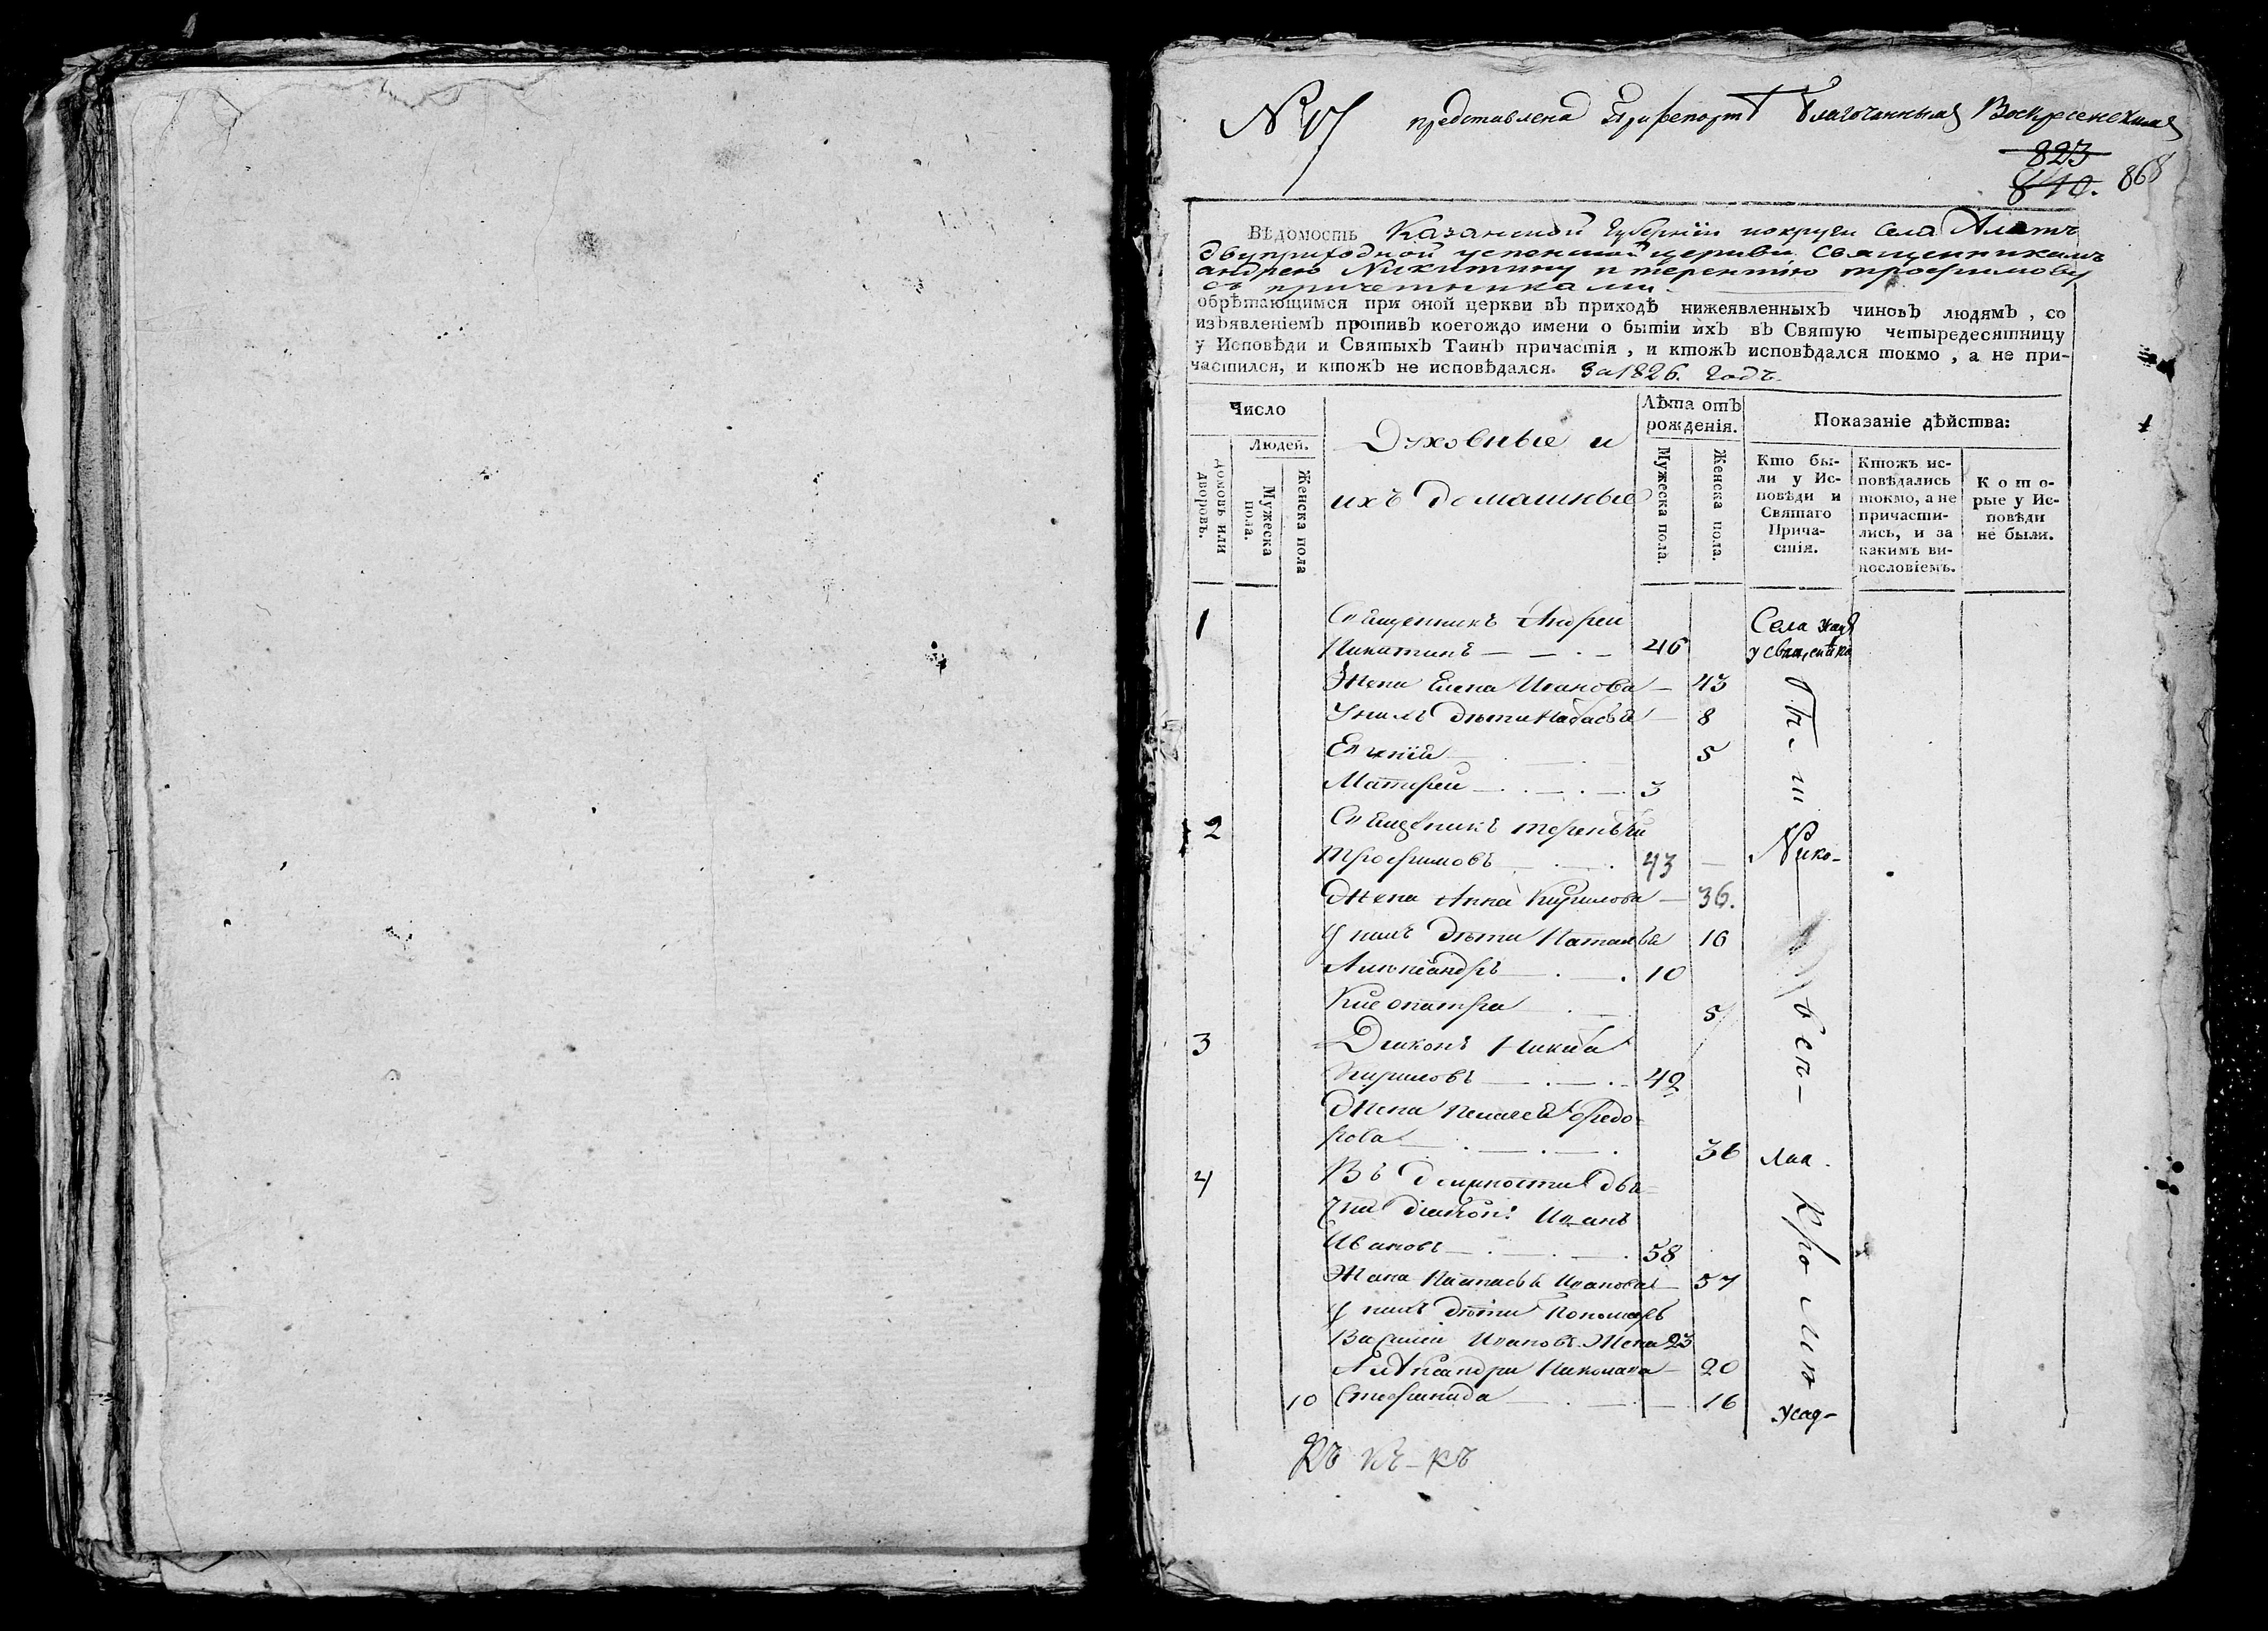 № 17 представлена при репортѣ Благочиннымъ Воскресенскимъ
823
840. 868
Вѣдомость Казанской Губерніи и округи Села Алатъ
двуприходной успенской церкви Священникамъ
андрею Никитину и терентію трофимову
съ причетниками
обрѣтающимся при оной церкви въ приходѣ нижеявленныхъ чиновъ людямъ, со
изъявленіемъ противъ коегождо имени о бытіи ихъ въ Святую четыредесятницу
у Исповѣди и Святыхъ Таинъ причастія, и ктожъ исповѣдался токмо, а не при-
частился, и ктожъ не исповѣдался. За 1826. Годъ.
Число
Людей.
Домовъ или дворовъ.
Мужеска пола.
Женска пола
Духовные и
ихъ домашные
Лѣта отъ
рожденія.
Мужеска пола.
Женска пола.
Показаніе дѣйства:
Кто бы-
ли у Ис-
повѣди и
Святаго
Прича-
стія.
Ктожъ ис-
повѣдались
токмо, а не
причасти-
лись, и за
какимъ ви-
нословіемъ.
Кото-
рые у Ис-
повѣди
не были.
1 Священникъ Андреи
Никитинъ 46
Жена Елена Иванова 43
У нихъ дѣти 8
5
Матфеи 3
2 Священникъ терентій
трофимовъ 43
Жена Анна Кирилова 36.
У нихъ дѣти Наталья 16
Александръ 10
Клеопатра 5
3 Диаконъ Никита
Кириловъ 42
Жена Пелагея Федо-
рова 36
4 Въ должности дья-
чка диакон: Иванъ
Ивановъ 58
Жена Настасья Иванова 57
У нихъ дѣти Пономарь
Василеи Ивановъ Жена 23
Александра Николаева 20
10 Стефанида 16
Села
у священника
Бы- ли
Нико-
лая
Къ къ-къ